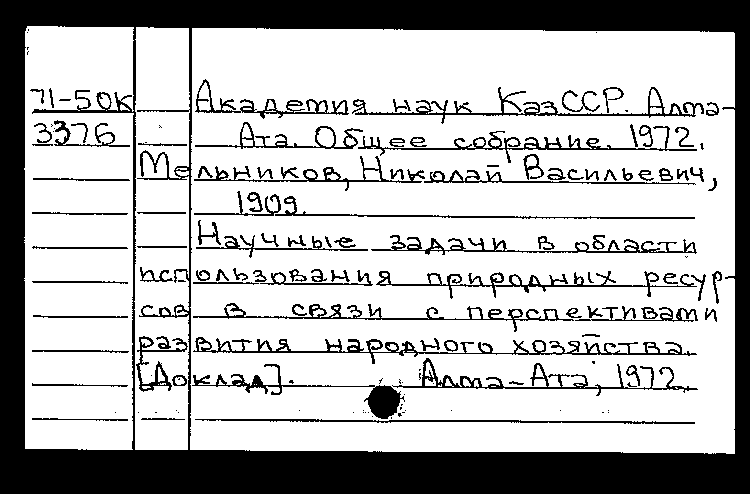 71-50К Академия наук КазССР. Алма-
3376 Ата. Общее собрание. 1972.
Мельников, Николай Васильевич,
1909.
Научные задачи в области
использования природных ресур-
сов в связи с перспективами
развития народного хозяйства.
[Доклад]. Алма-Ата, 1972.